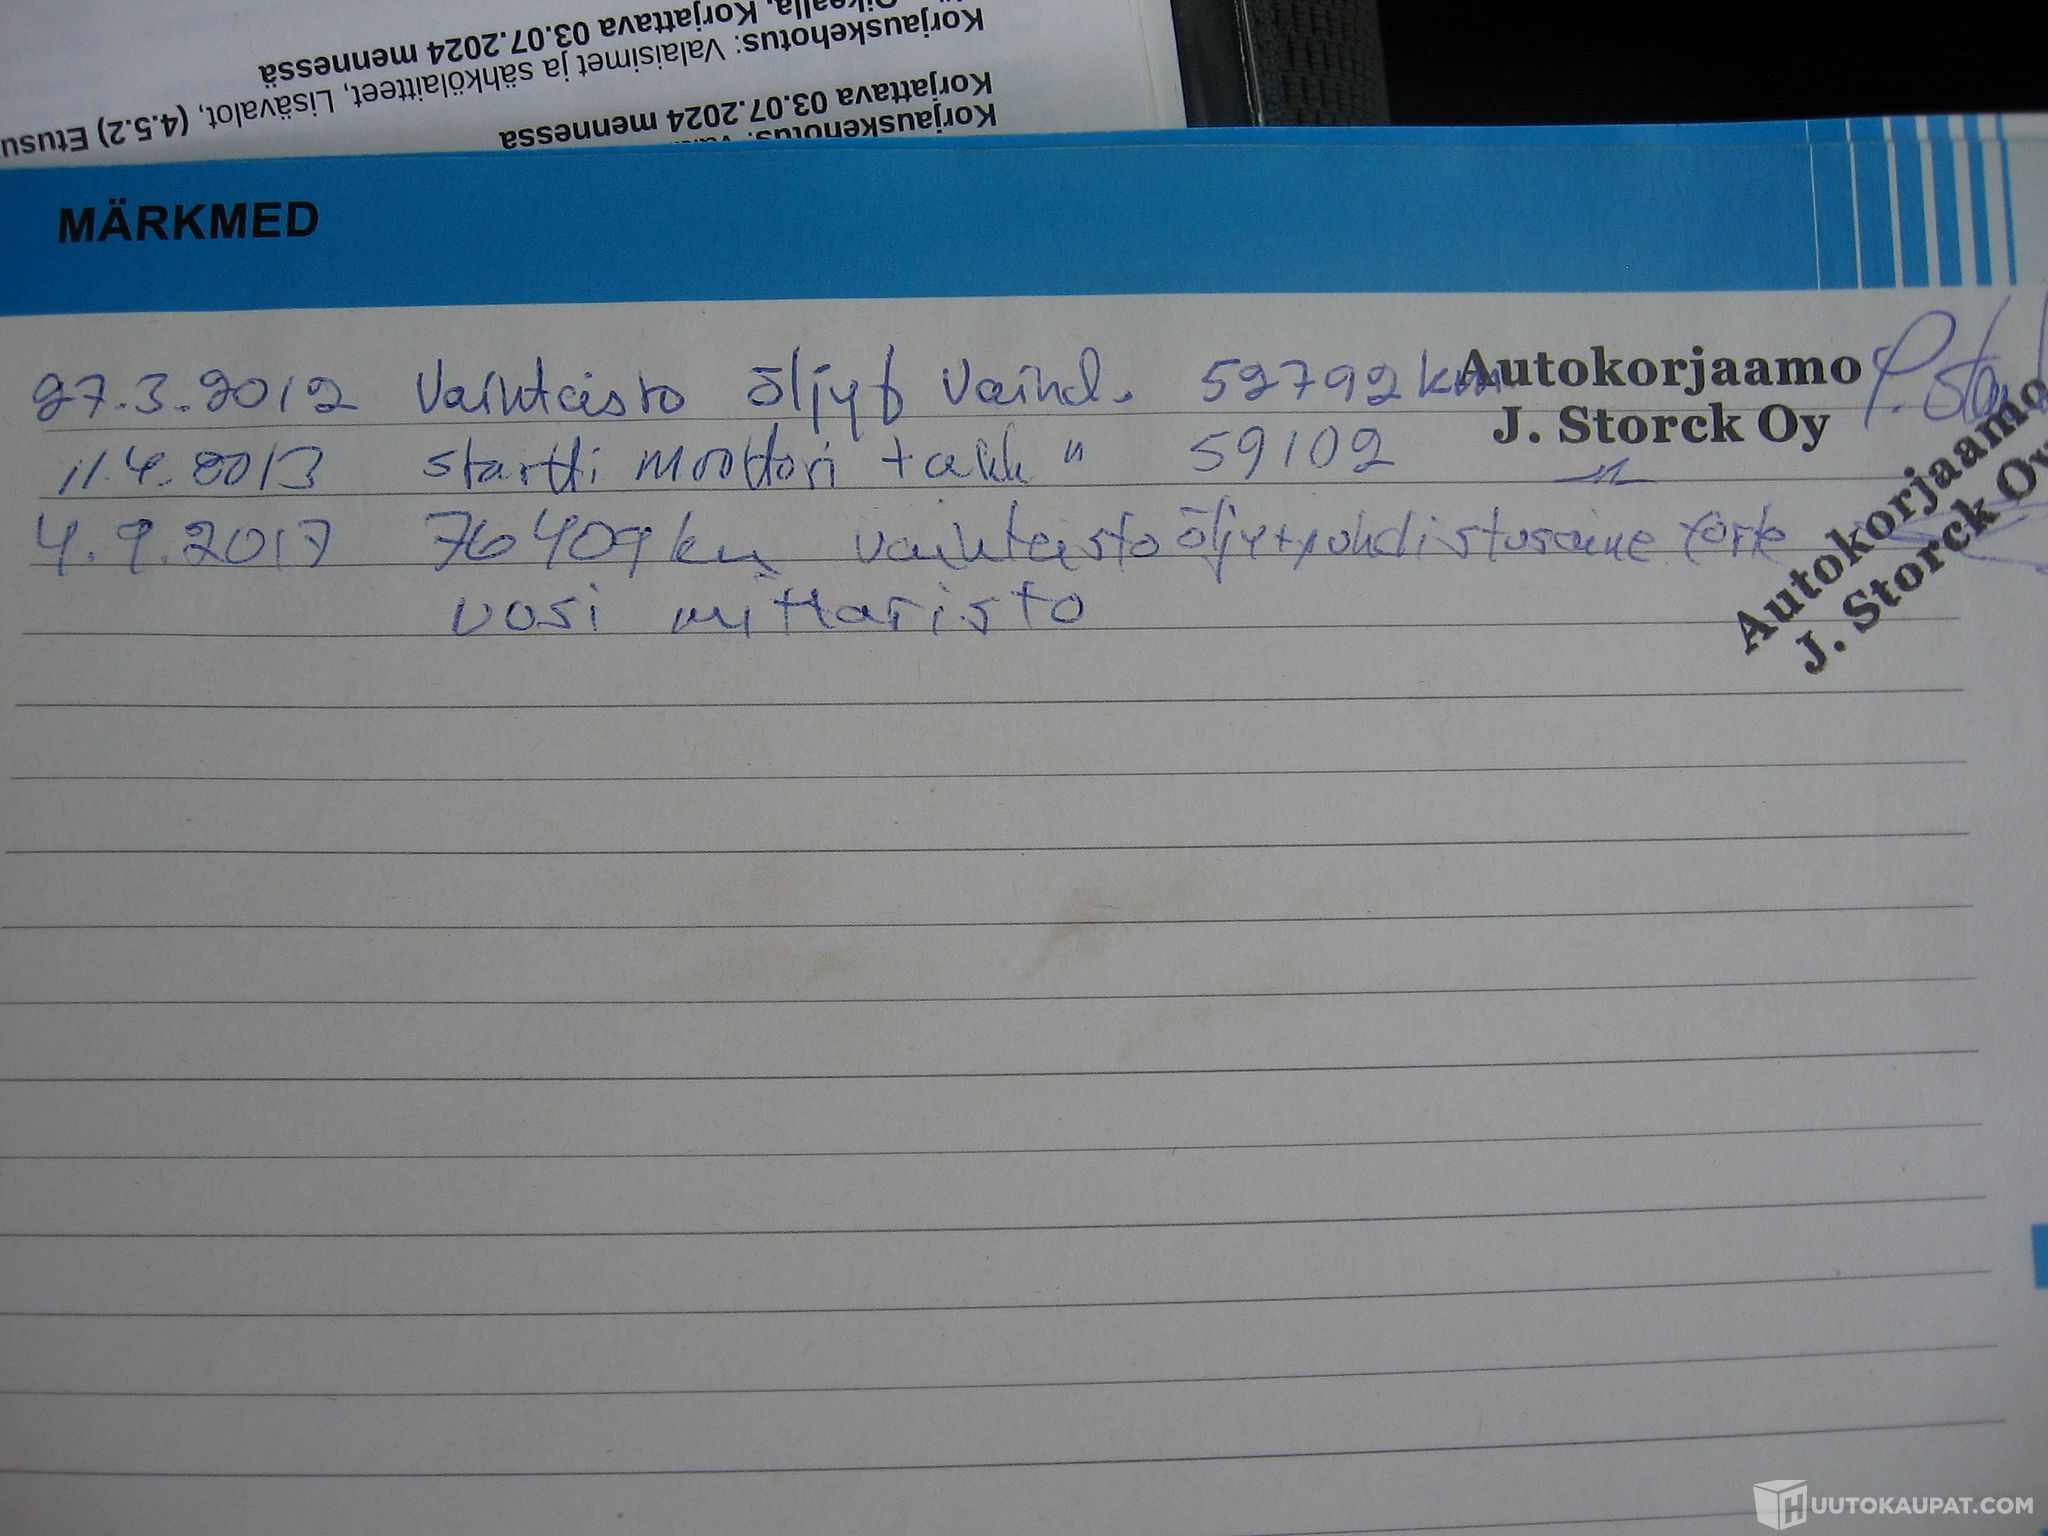 Oikealla, Korjattava 03.07.2024 mennessä
Korjauskehotus: Valaisimet ja sähkölaitteet, Lisävalot, (4.5.2) Etusu
Korjattava 03.07.2024 mennessä
Korjauskehotus:
MÄRKMED
27.3.2012 Vaihteisto öljyt vaihd. 52792 km
Autokorjaamo
J. Storck Oy
11.4.2013 startti moottori takk " 59102
4.9.2017 76409 km vaihteisto öljy+puhdistusaine
vosi mittaristo
Autokorjaamo
J. Storck Oy
HUUTOKAUPAT.COM